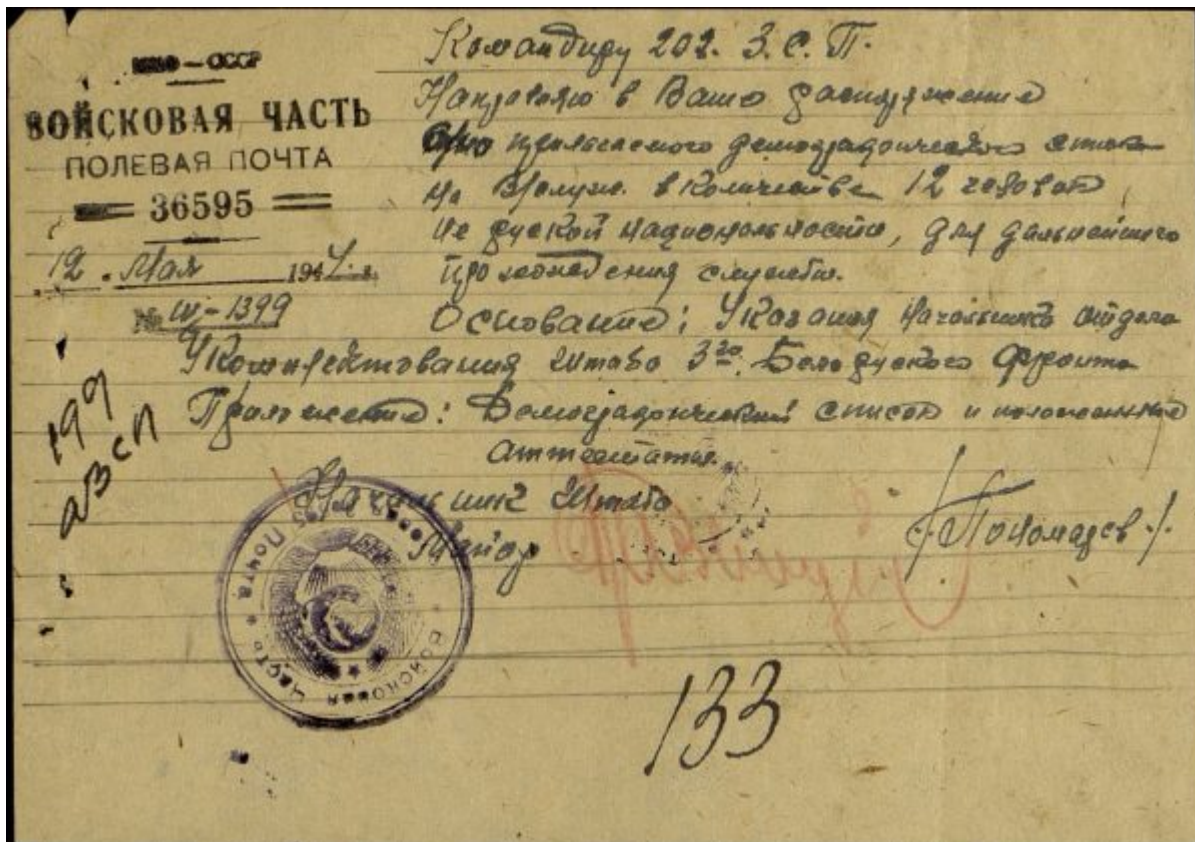 НКО — СССР
ВОЙСКОВАЯ ЧАСТЬ
ПОЛЕВАЯ ПОЧТА
36595
12. Мая 1944 г.
№ IV-1399
199
АЗСП
Командиру 202. З.С.П.
Направляю в Ваше распоряжение
прилагаемого демографического списка
в количестве 12 человек
не руской национальности, для дальнейшего
прохождения службы.
Основание: Указания Начальника отдела
Укомплектования Штаба 3го. Белоруского Фронта
Приложение: Демографический список и
аттестаты.
Начальник Штаба
Майор
/Пономарев./
Войсковая Часть Полевая Почта
133